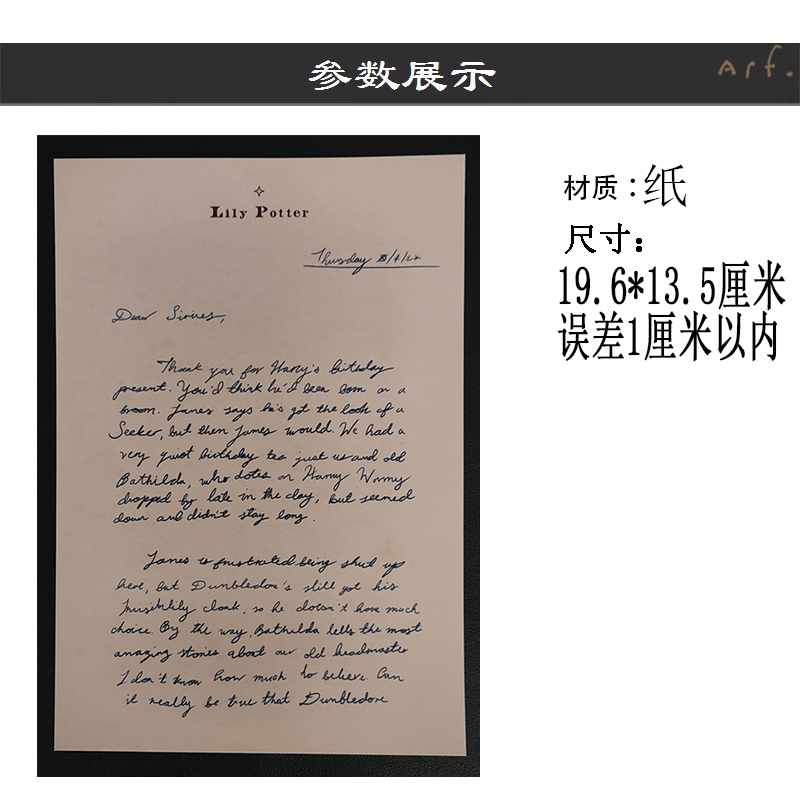 参数展示
Arf.
Lily Potter
Thursday
Dear Sirius,
Thank you for Harry's birthday
present. You'd think he'd been born on a
broom. James says he's got the look of a
Seeker, but then James would. We had a
very quiet birthday tea just us and old
Bathilda, who dotes on Harry Wormy
dropped by late in the day, but seemed
down and didn't stay long.
James is frustrated being shut up
here, but Dumbledore's still got his
Invisibility cloak, so he doesn't have much
choice. By the way, Bathilda tells the most
amazing stories about our old headmaster
I don't know how much to believe. Can
it really be true that Dumbledore
材质：纸
尺寸：
19.6*13.5厘米
误差1厘米以内